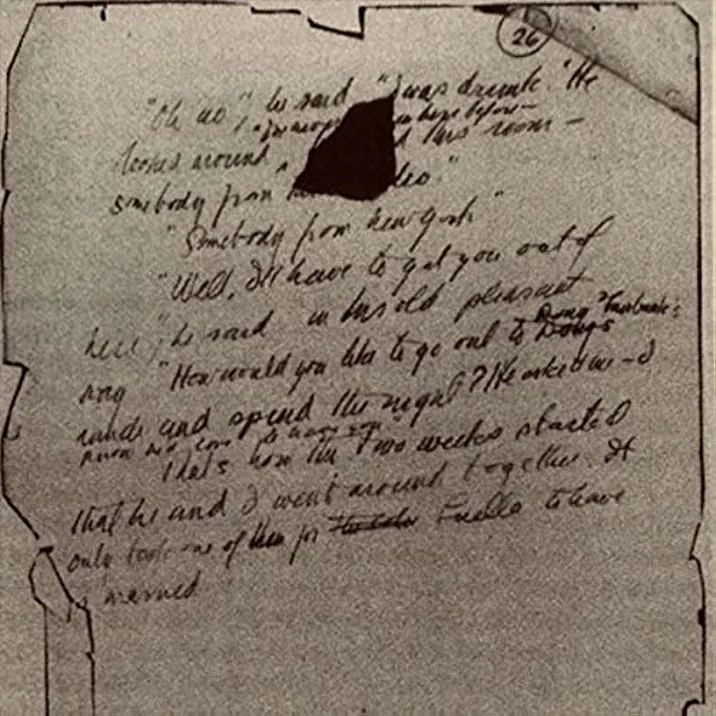 26
"Oh no", he said "I was drunk." He
before –
looked around his room –
somebody from
"Somebody from New York"
"Well, I'll have to get you out of
here", he said in his old pleasant
way "How would you like to go out to Doug Fairbank's
ranch and spend the night? He asked me – I
know he'd love to have you"
That's how the two weeks started
that he and I went around together. It
only took one of them for Louella to have
us married